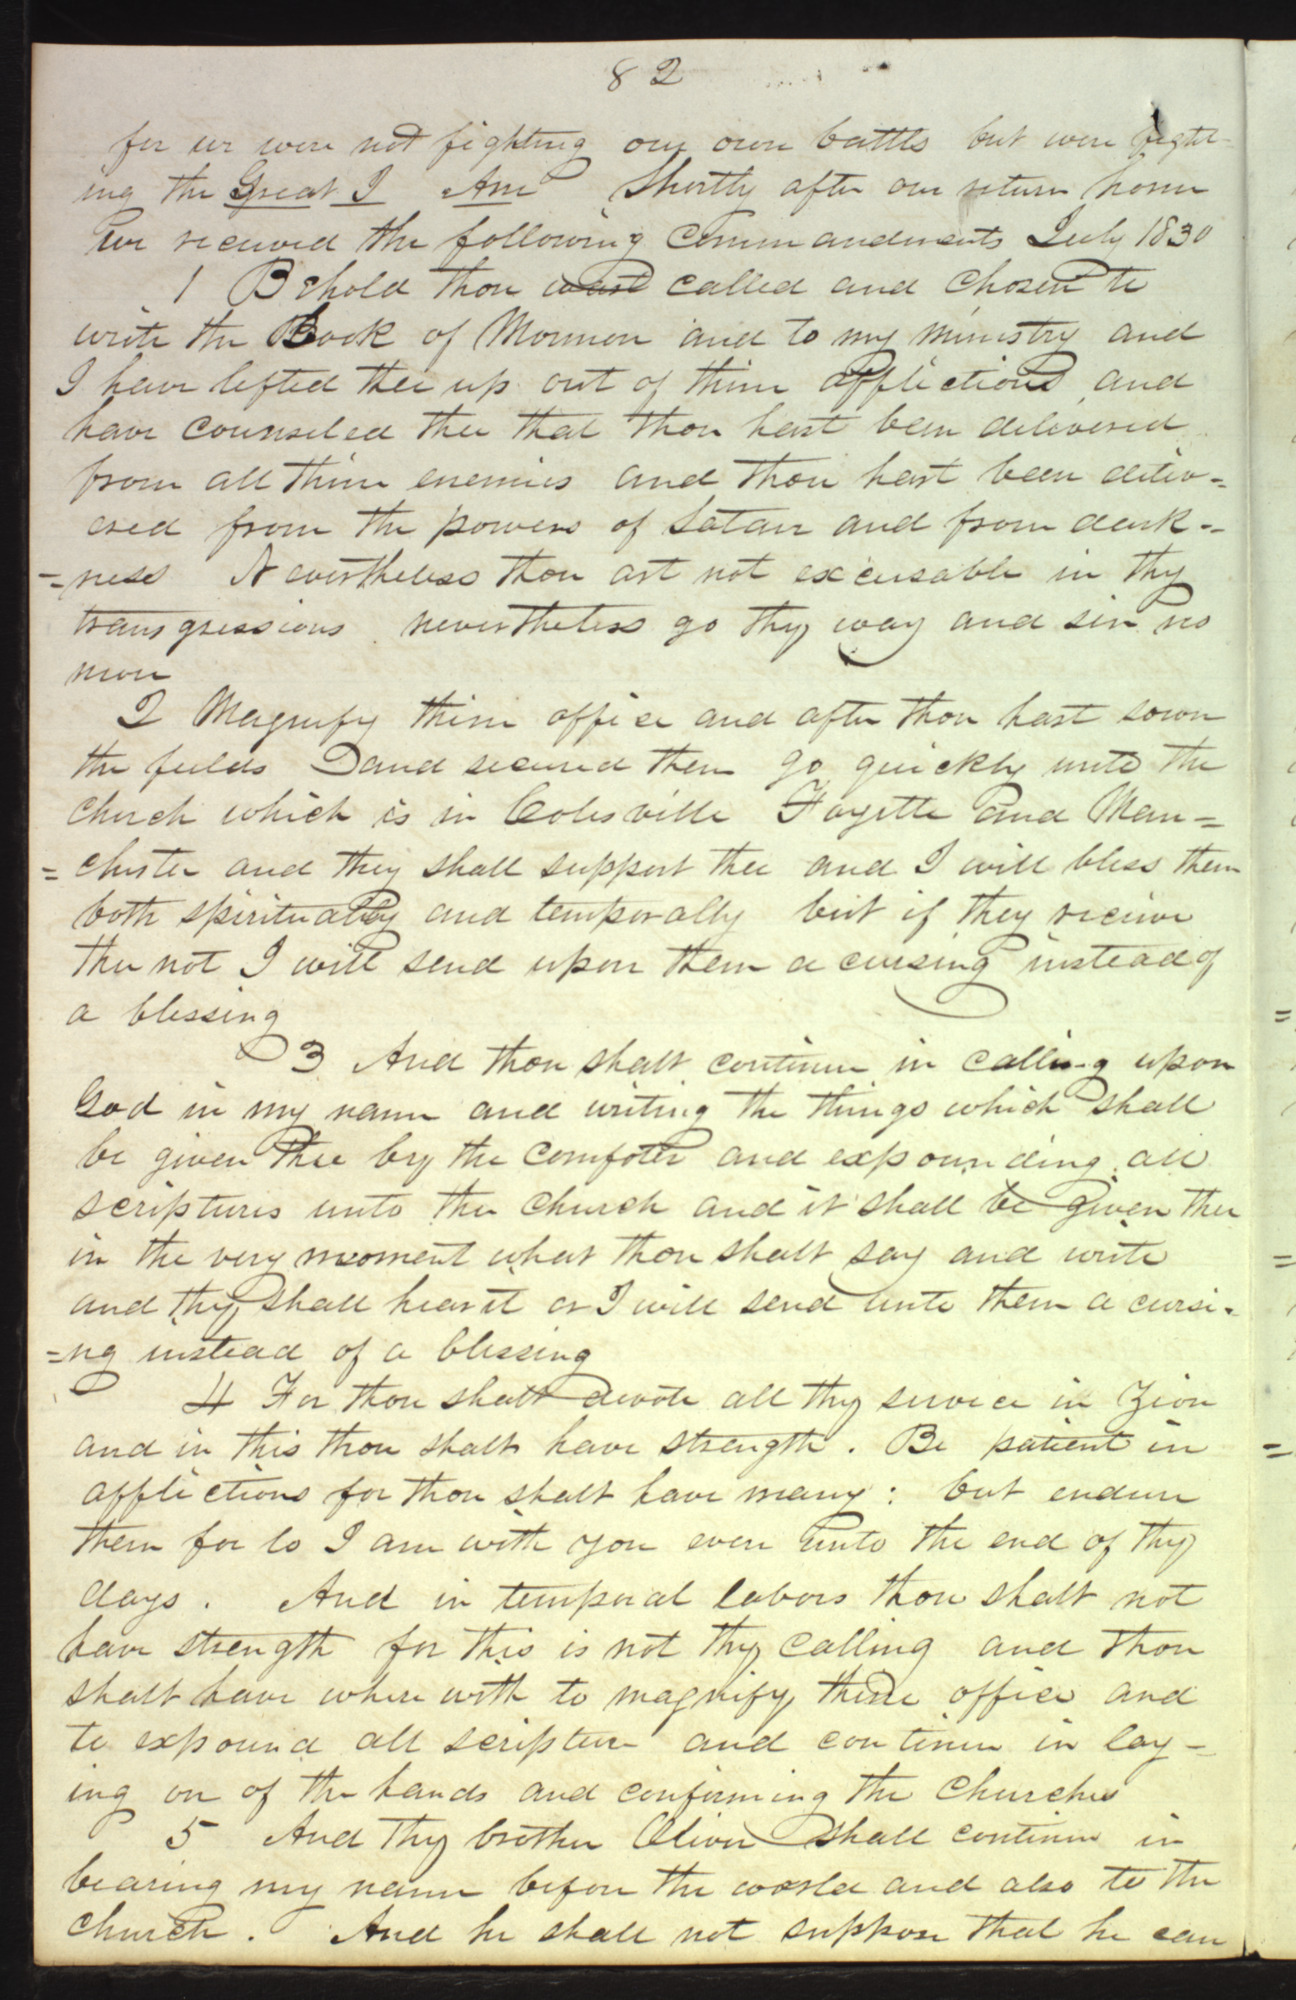 82
for we were not fighting our own battls but were fight-
ing the Great I Am Shortly after our return home
we received the following Commandments July 1830
1 Behold thou wast called and Chosen to
write the Book of Mormon and to my ministry and
I have lifted thee up out of thine afflictions and
have counseled thee that thou hast been delivered
from all thine enemies and thou hast been deliv-
ered from the powers of Satan and from dark-
=ness Nevertheless thou art not excusable in thy
transgressions nevertheless go thy way and sin no
more
2 Magnify thine office and after thou hast sown
the fields and secured them go quickly unto the
church which is in Colesville Fayette and Man=
=chester and they shall support thee and I will bless them
both spiritually and temporally but if they receive
thee not I will send upon them a cursing instead of
a blessing
3 And thou shalt continue in calling upon
God in my name and writing the things which shall
be given thee by the comfoter and expounding all
scriptures unto the church and it shall be given thee
in the very moment what thou shalt say and write
and they shall hear it or I will send unto them a cursi-
=ng instead of a blessing
4 For thou shalt devote all thy service in Zion
and in this thou shalt have strength. Be patient in
afflictions for thou shalt have many: but endure
them for lo I am with you even unto the end of thy
days. And in temporal labors thou shalt not
have strength for this is not thy calling and thou
shalt have where with to magnify thine office and
to expound all scripture and continue in lay-
ing on of the hands and confirming the Churches
5 And thy brother Oliver shall continue in
bearing my name before the world and also to the
church. And he shall not suppose that he can